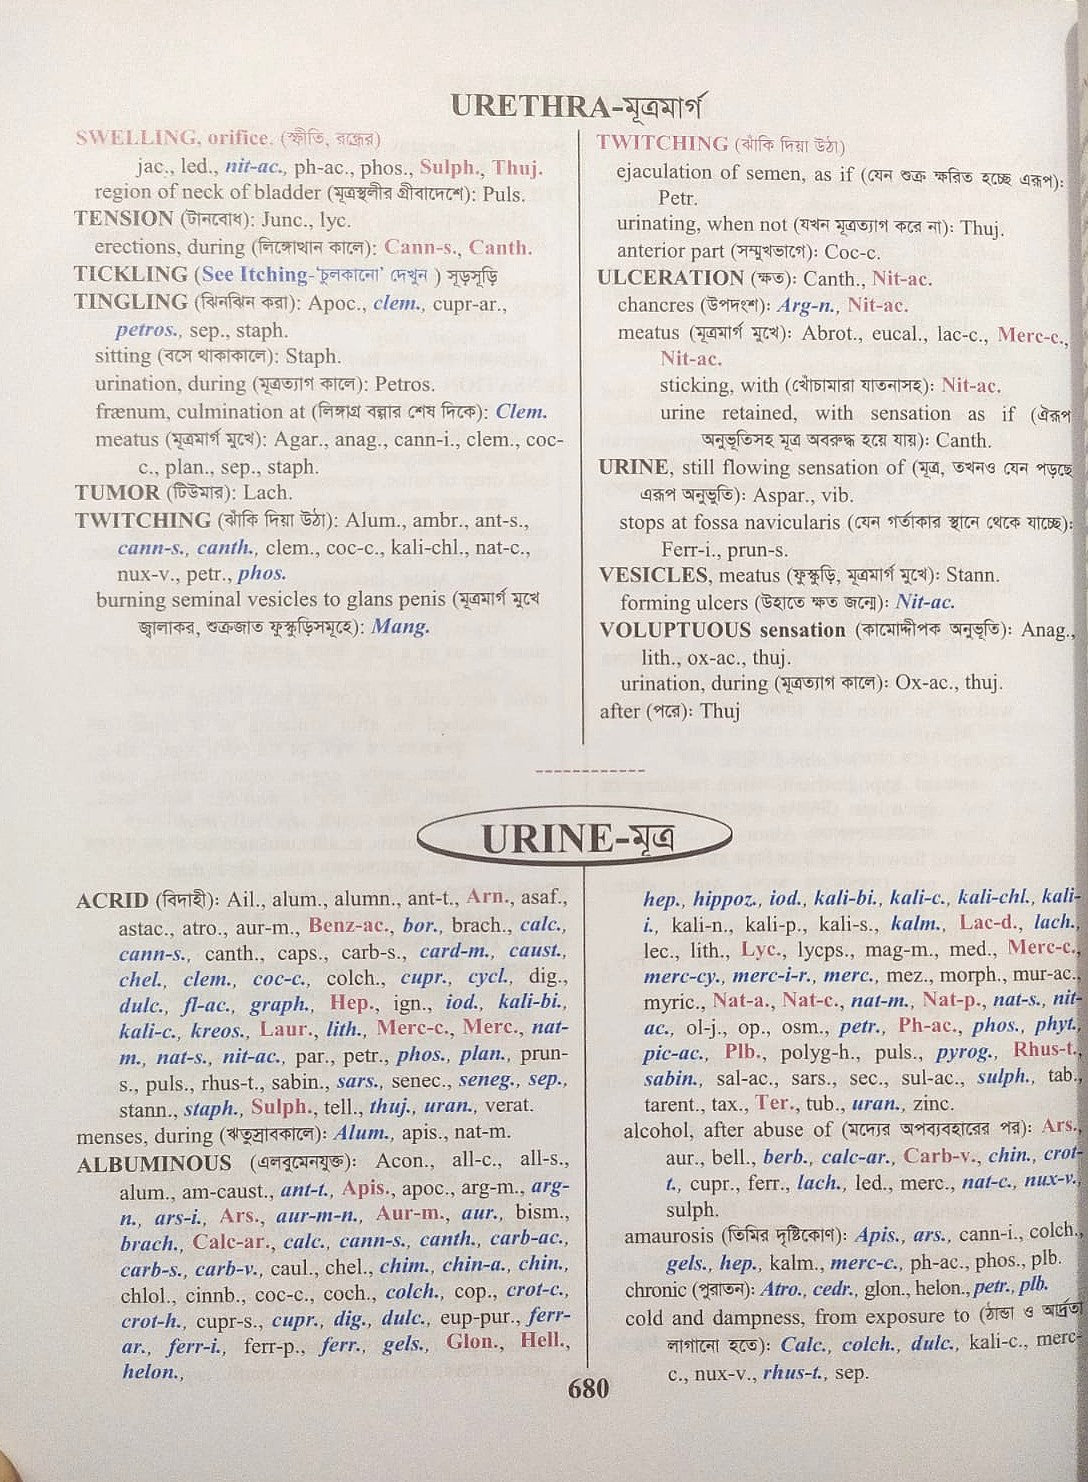 URETHRA-মূত্রমার্গ
SWELLING, orifice. (স্ফীতি, রন্ধ্রের)
jac., led., nit-ac., ph-ac., phos., Sulph., Thuj.
region of neck of bladder (মূত্রস্থলীর গ্রীবাদেশে): Puls.
TENSION (টানবোধ): Junc., lyc.
erections, during (লিঙ্গোত্থান কালে): Cann-s., Canth.
TICKLING (See Itching-'চুলকানো' দেখুন ) সূড়সূড়ি
TINGLING (ঝিনঝিন করা): Apoc., clem., cupr-ar.,
petros., sep., staph.
sitting (বসে থাকাকালে): Staph.
urination, during (মূত্রত্যাগ কালে): Petros.
frænum, culmination at (লিঙ্গাগ্র বল্গার শেষ দিকে): Clem.
meatus (মূত্রমার্গ মুখে): Agar., anag., cann-i., clem., coc-
c., plan., sep., staph.
TUMOR (টিউমার): Lach.
TWITCHING (ঝাঁকি দিয়া উঠা): Alum., ambr., ant-s.,
cann-s., canth., clem., coc-c., kali-chl., nat-c.,
nux-v., petr., phos.
burning seminal vesicles to glans penis (মূত্রমার্গ মুখে
জ্বালাকর, শুক্রজাত ফুস্কুড়িসমূহে): Mang.
TWITCHING (ঝাঁকি দিয়া উঠা)
ejaculation of semen, as if (যেন শুক্র ক্ষরিত হচ্ছে এরূপ):
Petr.
urinating, when not (যখন মূত্রত্যাগ করে না): Thuj.
anterior part (সম্মুখভাগে): Coc-c.
ULCERATION (ক্ষত): Canth., Nit-ac.
chancres (উপদংশ): Arg-n., Nit-ac.
meatus (মূত্রমার্গ মুখে): Abrot., eucal., lac-c., Merc-c.,
Nit-ac.
sticking, with (খোঁচামারা যাতনাসহ): Nit-ac.
urine retained, with sensation as if (ঐরূপ
অনুভূতিসহ মূত্র অবরুদ্ধ হয়ে যায়): Canth.
URINE, still flowing sensation of (মূত্র, তখনও যেন পড়ছে
এরূপ অনুভূতি): Aspar., vib.
stops at fossa navicularis (যেন গর্তাকার স্থানে থেকে যাচ্ছে):
Ferr-i., prun-s.
VESICLES, meatus (ফুস্কুড়ি, মূত্রমার্গ মুখে): Stann.
forming ulcers (উহাতে ক্ষত জন্মে): Nit-ac.
VOLUPTUOUS sensation (কামোদ্দীপক অনুভূতি): Anag.,
lith., ox-ac., thuj.
urination, during (মূত্রত্যাগ কালে): Ox-ac., thuj.
after (পরে): Thuj
------------
URINE-মূত্র
ACRID (বিদাহী): Ail., alum., alumn., ant-t., Arn., asaf.,
astac., atro., aur-m., Benz-ac., bor., brach., calc.,
cann-s., canth., caps., carb-s., card-m., caust.,
chel., clem., coc-c., colch., cupr., cycl., dig.,
dulc., fl-ac., graph., Hep., ign., iod., kali-bi.,
kali-c., kreos., Laur., lith., Merc-c., Merc., nat-
m., nat-s., nit-ac., par., petr., phos., plan., prun-
s., puls., rhus-t., sabin., sars., senec., seneg., sep.,
stann., staph., Sulph., tell., thuj., uran., verat.
menses, during (ঋতুস্রাবকালে): Alum., apis., nat-m.
ALBUMINOUS (এলবুমেনযুক্ত): Acon., all-c., all-s.,
alum., am-caust., ant-t., Apis., apoc., arg-m., arg-
n., ars-i., Ars., aur-m-n., Aur-m., aur., bism.,
brach., Calc-ar., calc., cann-s., canth., carb-ac.,
carb-s., carb-v., caul., chel., chim., chin-a., chin.,
chlol., cinnb., coc-c., coch., colch., cop., crot-c.,
crot-h., cupr-s., cupr., dig., dulc., eup-pur., ferr-
ar., ferr-i., ferr-p., ferr., gels., Glon., Hell.,
helon.,
hep., hippoz., iod., kali-bi., kali-c., kali-chl., kali-
i., kali-n., kali-p., kali-s., kalm., Lac-d., lach.,
lec., lith., Lyc., lycps., mag-m., med., Merc-c.,
merc-cy., merc-i-r., merc., mez., morph., mur-ac.,
myric., Nat-a., Nat-c., nat-m., Nat-p., nat-s., nit-
ac., ol-j., op., osm., petr., Ph-ac., phos., phyt.,
pic-ac., Plb., polyg-h., puls., pyrog., Rhus-t.,
sabin., sal-ac., sars., sec., sul-ac., sulph., tab.,
tarent., tax., Ter., tub., uran., zinc.
alcohol, after abuse of (মদ্যের অপব্যবহারের পর): Ars.,
aur., bell., berb., calc-ar., Carb-v., chin., crot-
t., cupr., ferr., lach., led., merc., nat-c., nux-v.,
sulph.
amaurosis (তিমির দৃষ্টিকোণ): Apis., ars., cann-i., colch.,
gels., hep., kalm., merc-c., ph-ac., phos., plb.
chronic (পুরাতন): Atro., cedr., glon., helon., petr., plb.
cold and dampness, from exposure to (ঠান্ডা ও আর্দ্রতা
লাগানো হতে): Calc., colch., dulc., kali-c., merc-
c., nux-v., rhus-t., sep.
680